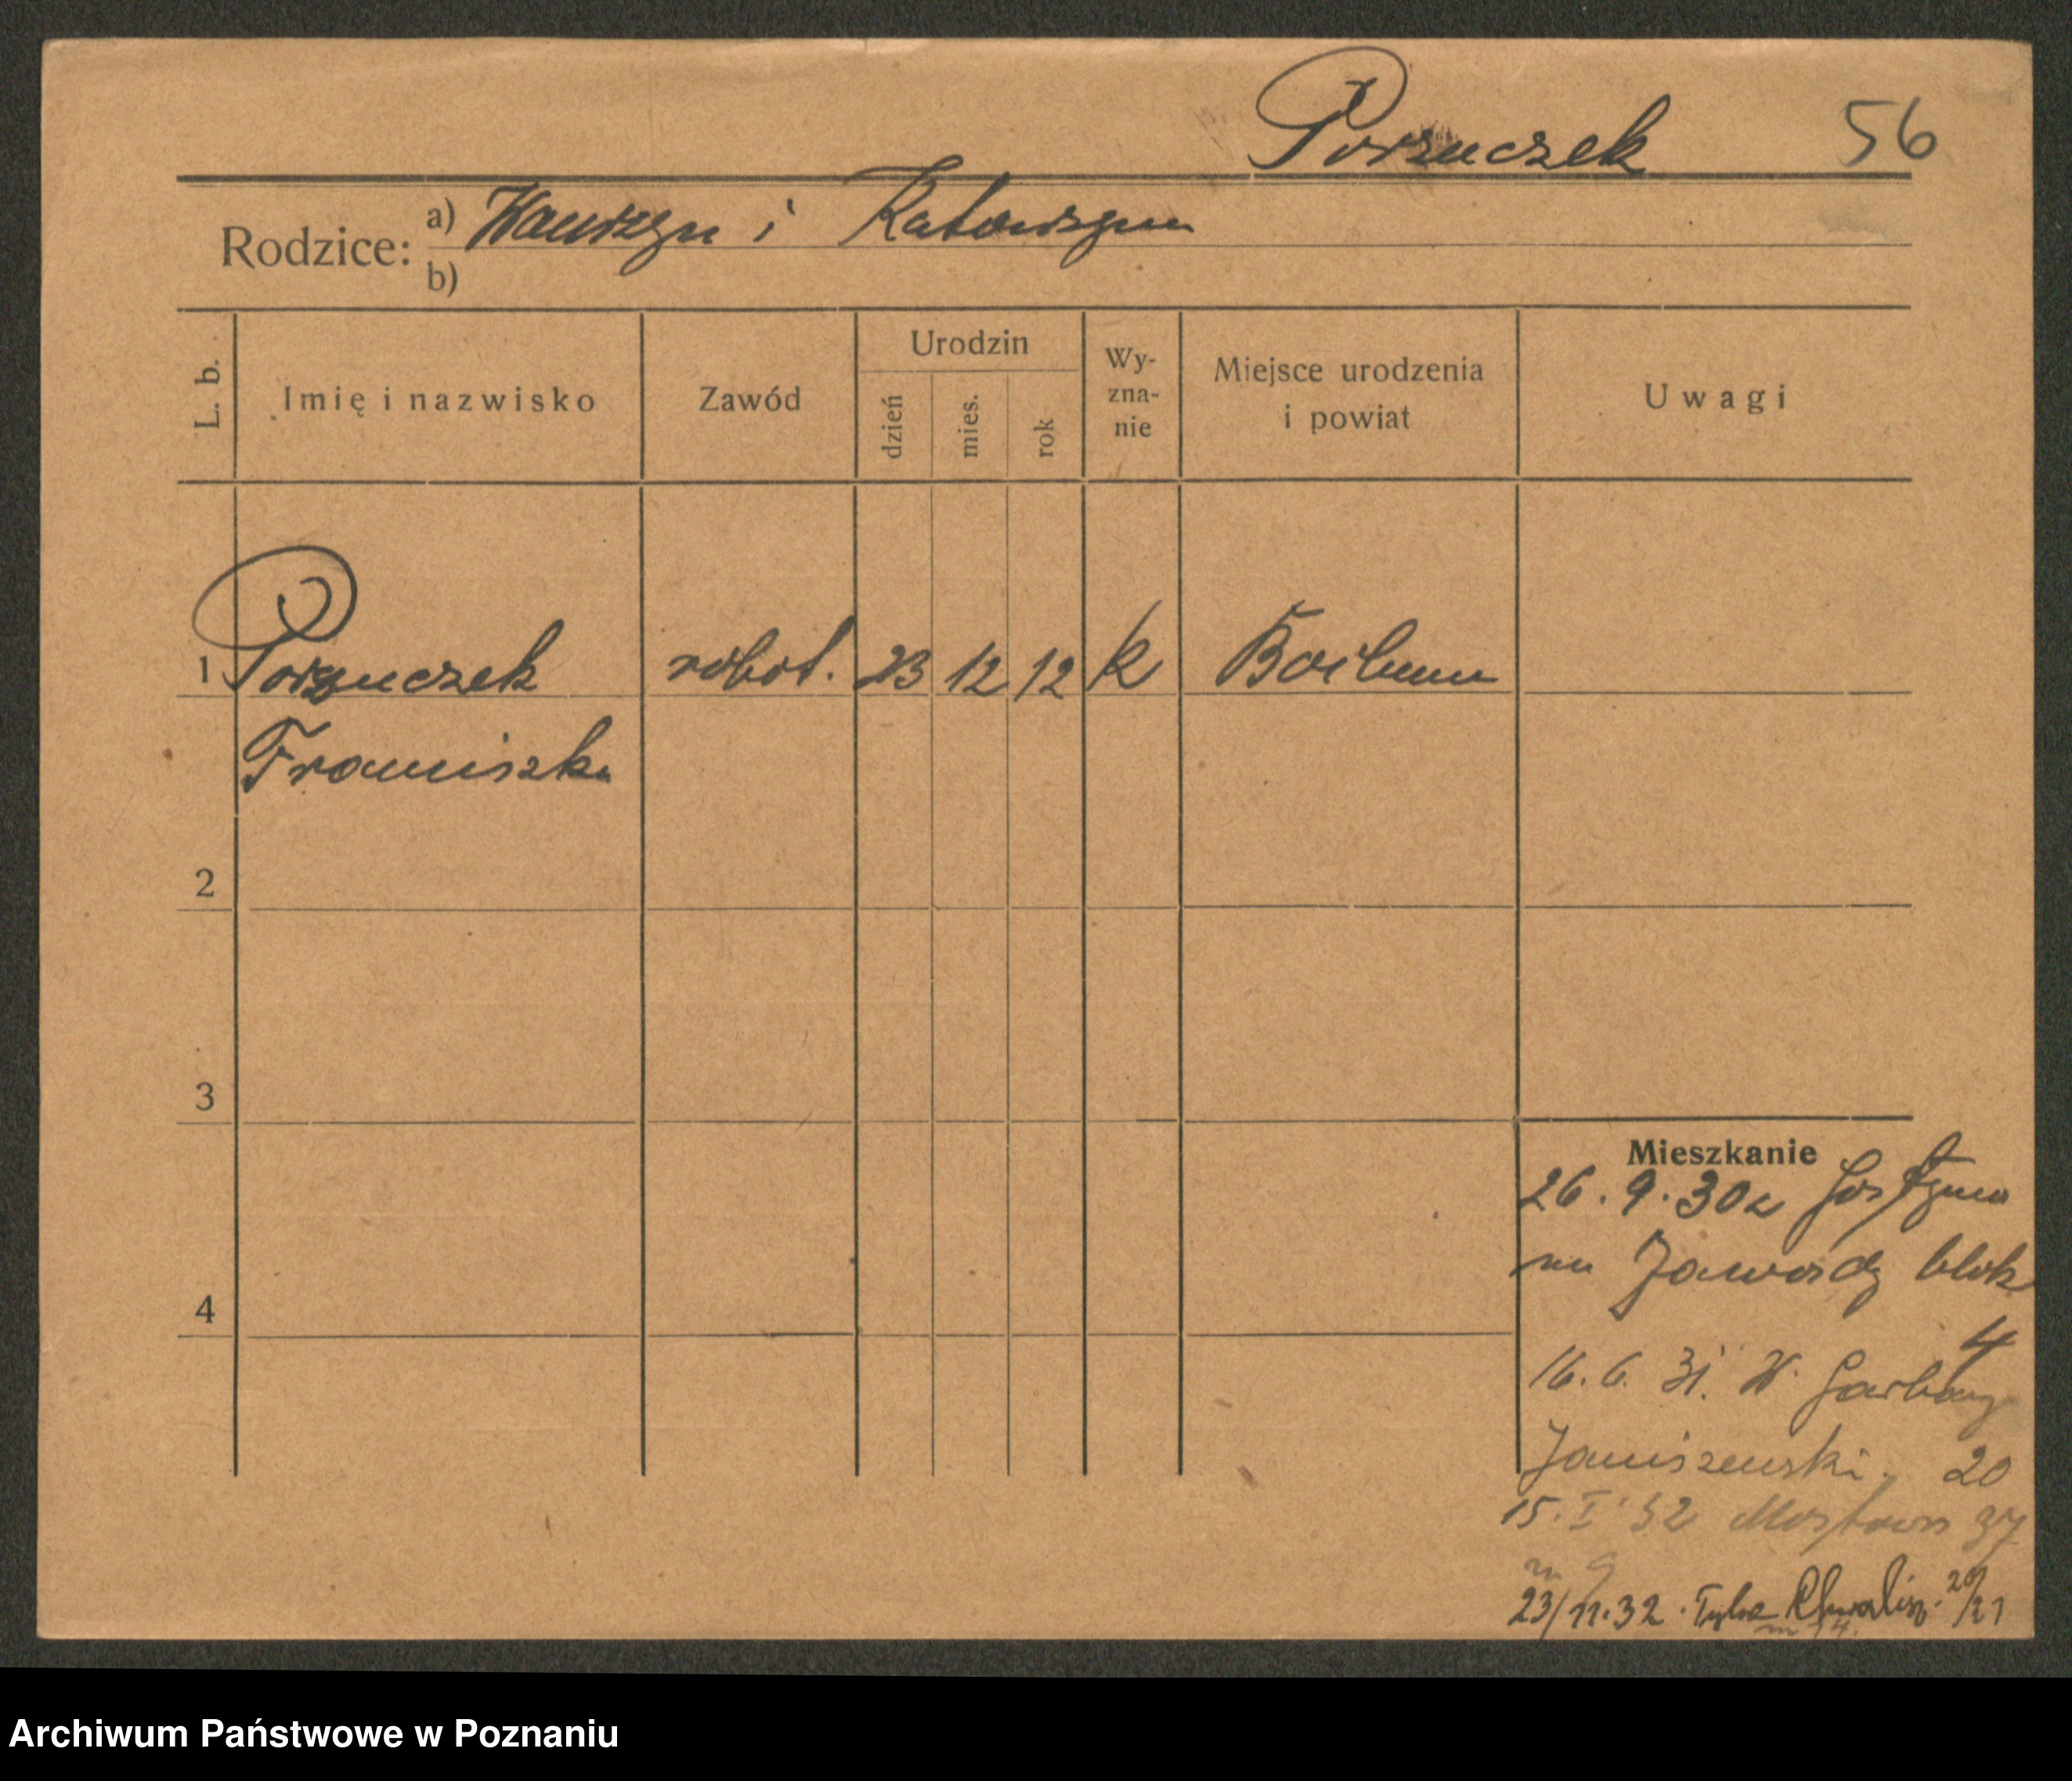 Porzuczek 56
Rodzice: a) Wawrzyn i Katarzyna
b)
L. b. Imię i nazwisko Zawód Urodzin dzień mies. rok Wy-zna-nie Miejsce urodzenia i powiat Uwagi
1 Porzuczek robot. 23 12 12 k Bochum
Franciszka
2
3
4
Mieszkanie
26. 9. 30 z Gostynia
na Zawady blok
4
16. 6. 31. W. Garbary
Janiszewski. 20
15. I 32 Mostowa 37
m 9
23/11.32. Tylne Chwalisz. 20/21
m 14.
Archiwum Państwowe w Poznaniu